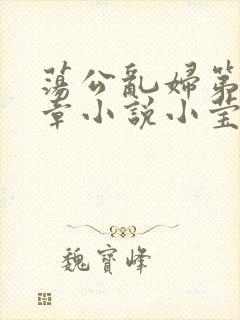 蕩公亂婦第
章小說小瑩
魏寶峰